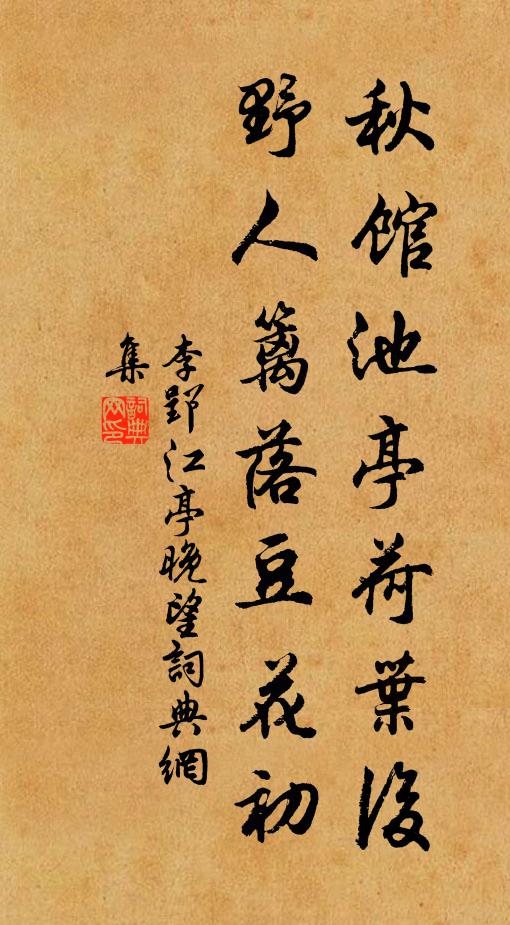 秋館池亭荷葉後
野人籬落豆花初
李郢江亭晚望詞典網
集
詞典網印